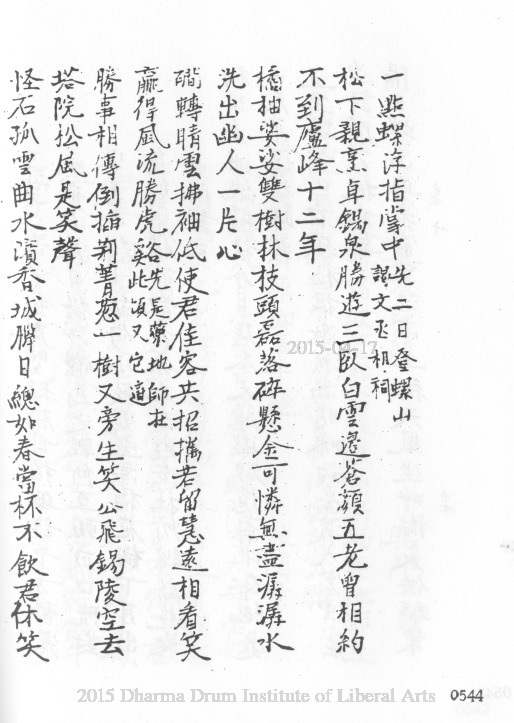 一點螺浮指掌中先二日登螺山謁文丞相祠
松下親烹卓錫泉勝遊三臥白雲邊蒼顏五老曾相約
不到廬峰十二年
橘柚娑娑雙樹林枝頭磊落碎懸金可憐無盡潺潺水
洗出幽人一片心
磵轉晴雲拂袖低使君佳客共招攜若留慧遠相看笑
贏得風流勝虎谿先是藥地師在此頃又它適
勝事相傳倒插荊菁葱一樹又旁生笑公飛錫陵空去
塔院松風是笑聲
怪石孤雲曲水濱香城勝日總如春當杯不飲君休笑
2015-04-17
2015 Dharma Drum Institute of Liberal Arts
0544